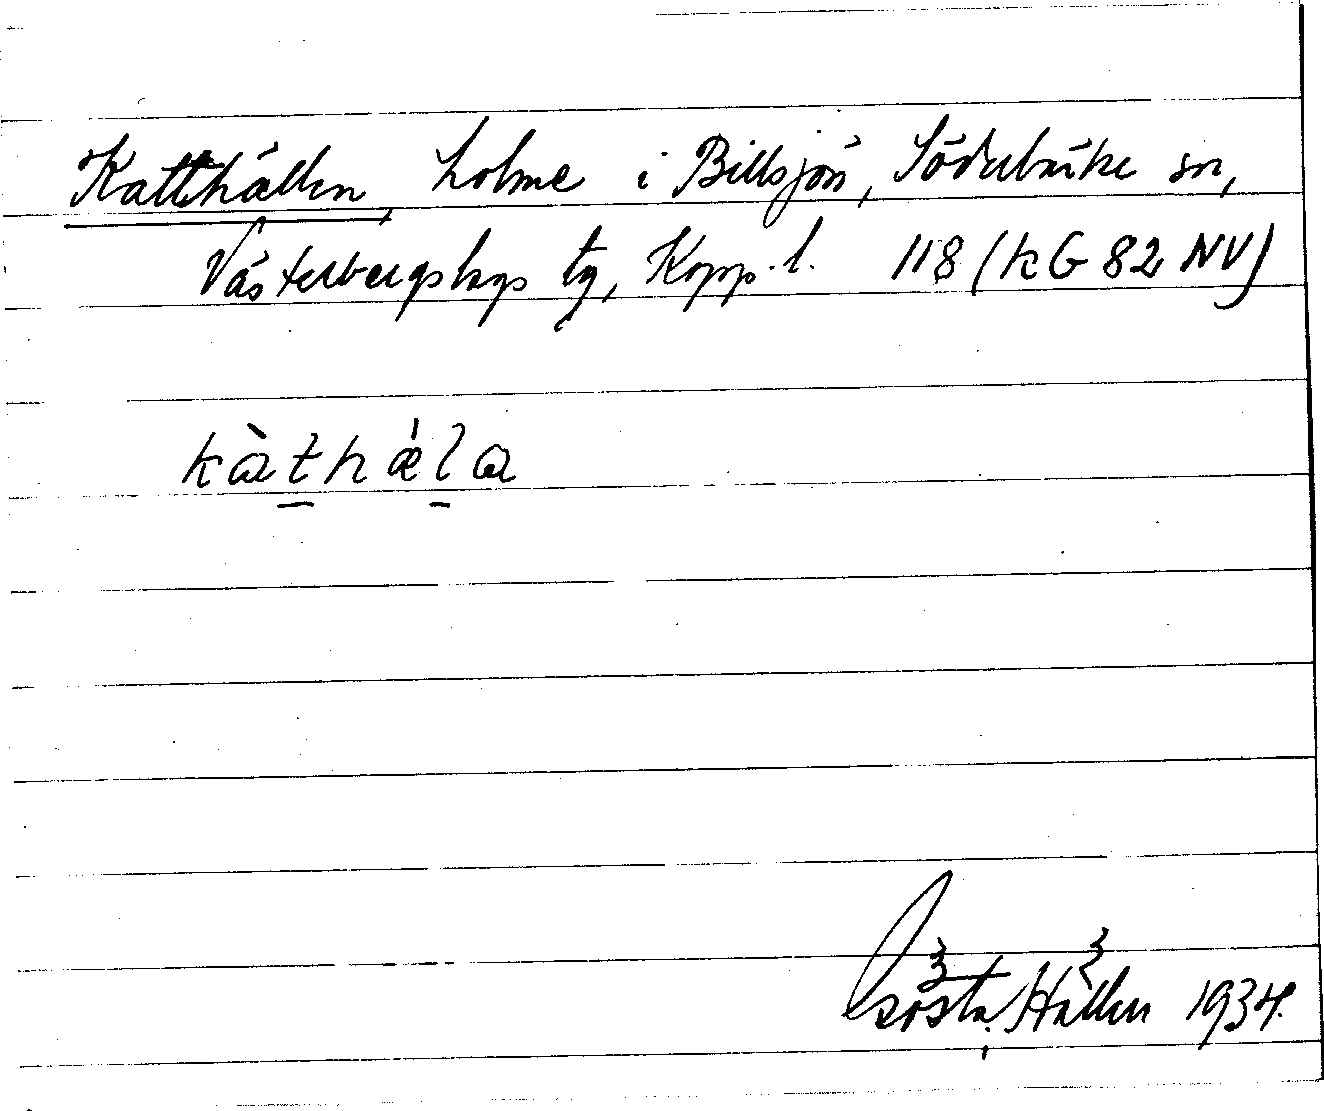 Katthällen, holme i Billsjön, Söderbärke sn,
Västerbergslags tg, Kopp. l. 118 (kG 82 NV)
kàthǽla
Gösta Hållen 1934.